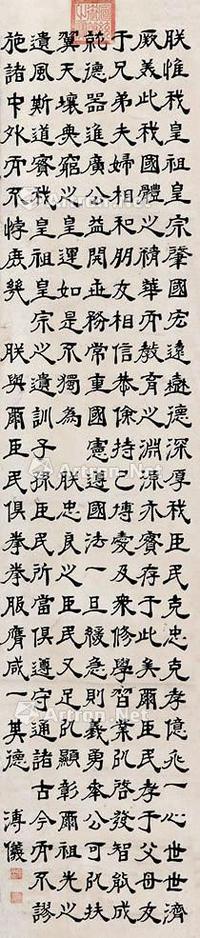 朕惟我皇祖皇宗肇國宏遠樹德深厚我臣民克忠克孝億兆一心世世濟
厥美此我國體之精華而教育之淵源亦實存于此矣爾臣民孝于父母友
于兄弟夫婦相和朋友相信恭儉持己博愛及衆修學習業以啓發智能成
就德器進廣公益開世務常重國憲遵國法一旦緩急則義勇奉公以扶
翼天壤無窮之皇運如是不獨為朕忠良之臣民又足以顯彰爾祖先之
遺風斯道實我皇祖皇宗之遺訓子孫臣民所當俱遵守通諸古今而不謬
施諸中外而不悖庶幾朕與爾臣民俱拳拳服膺咸一其德 溥儀